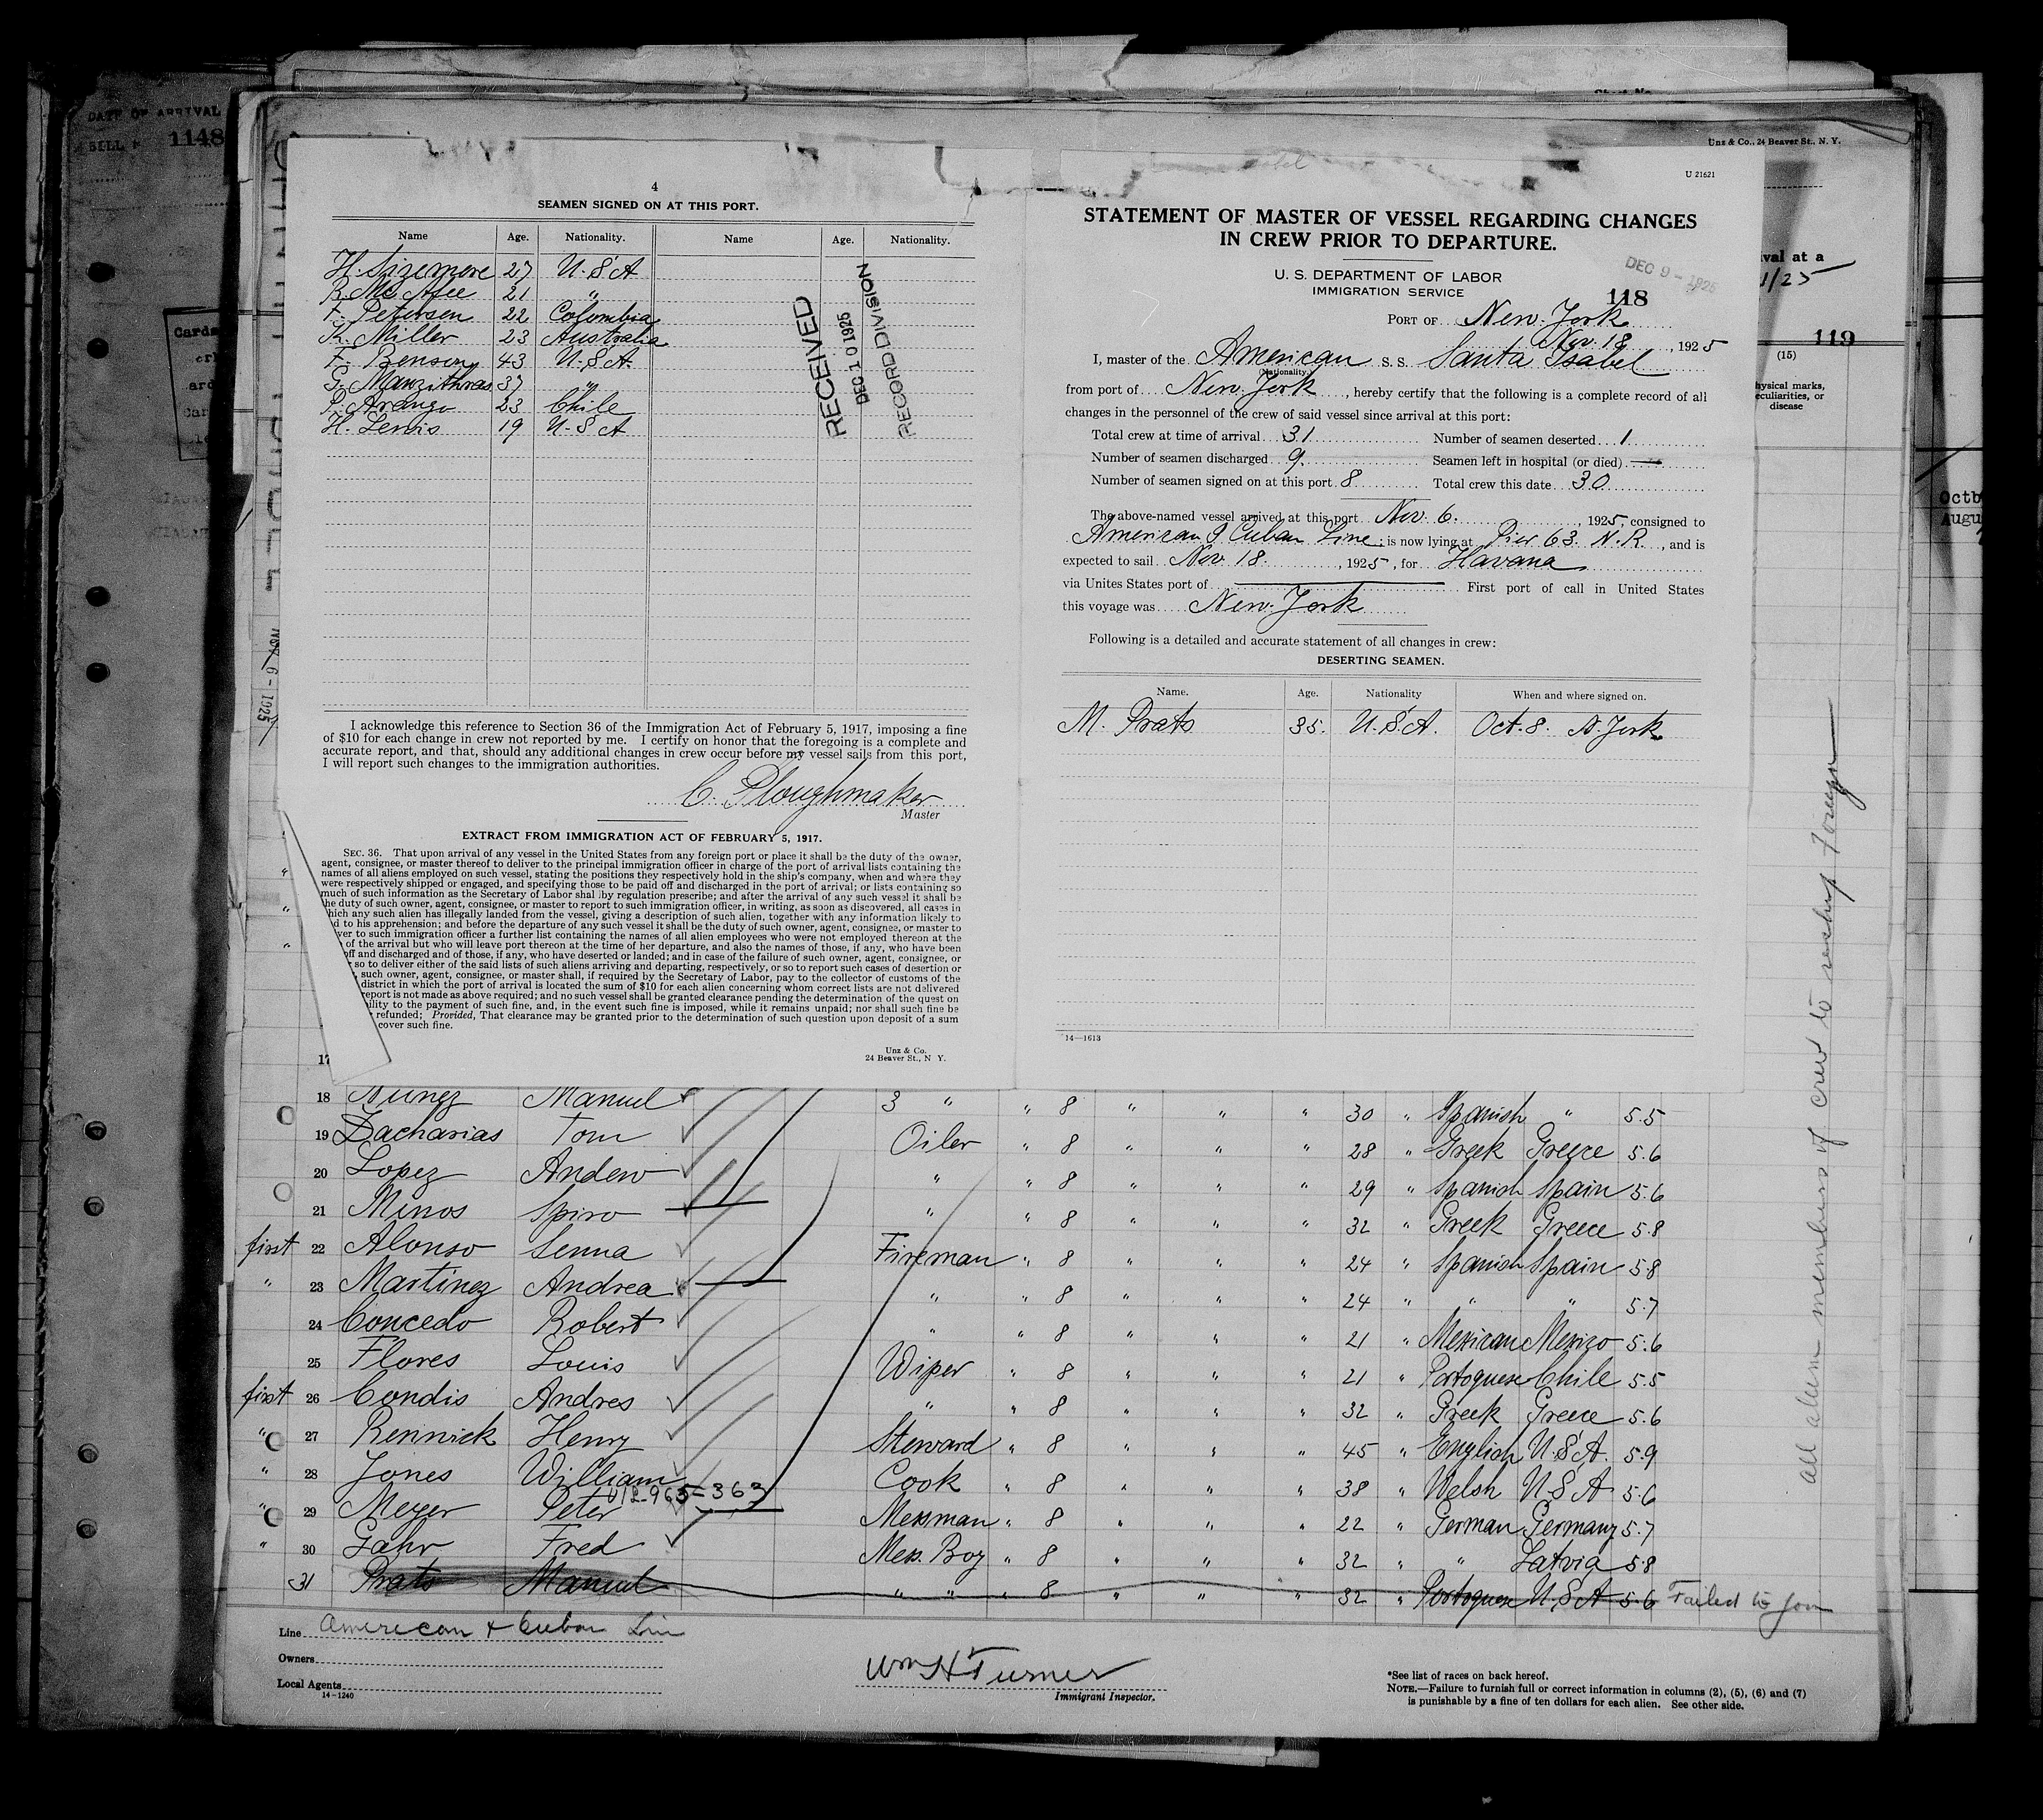 DATE OF ARRIVAL
1148
Unz & Co., 24 Beaver St., N. Y.
4
SEAMEN SIGNED ON AT THIS PORT.
Name Age. Nationality. Name Age. Nationality.
H. Sizemore 27 U.S.A
R. Mc Afee 21 "
F. Petersen 22 Colombia
K. Miller 23 Australia
F. Benson 43 U.S.A.
G. Manzithras 37 "
P. Arango 23 Chile
H. Lewis 19 U.S.A
RECEIVED
DEC 10 1925
RECORD DIVISION
I acknowledge this reference to Section 36 of the Immigration Act of February 5, 1917, imposing a fine
of $10 for each change in crew not reported by me. I certify on honor that the foregoing is a complete and
accurate report, and that, should any additional changes in crew occur before my vessel sails from this port,
I will report such changes to the immigration authorities.
C. Ploughmaker
Master
EXTRACT FROM IMMIGRATION ACT OF FEBRUARY 5, 1917.
SEC. 36. That upon arrival of any vessel in the United States from any foreign port or place it shall be the duty of the owner,
agent, consignee, or master thereof to deliver to the principal immigration officer in charge of the port of arrival lists containing the
names of all aliens employed on such vessel, stating the positions they respectively hold in the ship's company, when and where they
were respectively shipped or engaged, and specifying those to be paid off and discharged in the port of arrival; or lists containing so
much of such information as the Secretary of Labor shal lby regulation prescribe; and after the arrival of any such vessel it shall be
he duty of such owner, agent, consignee, or master to report to such immigration officer, in writing, as soon as discovered, all cases in
hich any such alien has illegally landed from the vessel, giving a description of such alien, together with any information likely to
d to his apprehension; and before the departure of any such vessel it shall be the duty of such owner, agent, consignee, or master to
ver to such immigration officer a further list containing the names of all alien employees who were not employed thereon at the
of the arrival but who will leave port thereon at the time of her departure, and also the names of those, if any, who have been
off and discharged and of those, if any, who have deserted or landed; and in case of the failure of such owner, agent, consignee, or
so to deliver either of the said lists of such aliens arriving and departing, respectively, or so to report such cases of desertion or
, such owner, agent, consignee, or master shall, if required by the Secretary of Labor, pay to the collector of customs of the
district in which the port of arrival is located the sum of $10 for each alien concerning whom correct lists are not delivered
report is not made as above required; and no such vessel shall be granted clearance pending the determination of the quest on
ility to the payment of such fine, and, in the event such fine is imposed, while it remains unpaid; nor shall such fine be
refunded; Provided, That clearance may be granted prior to the determination of such question upon deposit of a sum
cover such fine.
Unz & Co.
24 Beaver St., N Y.
U 21621
STATEMENT OF MASTER OF VESSEL REGARDING CHANGES
IN CREW PRIOR TO DEPARTURE.
U. S. DEPARTMENT OF LABOR
IMMIGRATION SERVICE
DEC 9 - 1925
118
PORT OF New York
Nov. 18, 1925
I, master of the American S. S. Santa Isabel
(Nationality)
from port of New York, hereby certify that the following is a complete record of all
changes in the personnel of the crew of said vessel since arrival at this port:
Total crew at time of arrival 31 Number of seamen deserted 1
Number of seamen discharged 9. Seamen left in hospital (or died) —
Number of seamen signed on at this port 8 Total crew this date 30
The above-named vessel arrived at this port Nov. 6., 1925, consigned to
American & Cuban Line; is now lying at Pier 63 N.R., and is
expected to sail Nov 18., 1925, for Havana
via Unites States port of — First port of call in United States
this voyage was New York
Following is a detailed and accurate statement of all changes in crew:
DESERTING SEAMEN.
Name. Age. Nationality When and where signed on.
M. Prats 35. U.S.A. Oct. 8. N. York
14—1613
val at a
1/25
119
(15)
hysical marks,
eculiarities, or
disease
Octb
Augu
NOV 6 - 1925
all alien members of crew to reship foreign
17
18 Nunez Manuel 3 " " 8 " " " 30 " Spanish " 5.5
19 Zacharias Tom Oiler " 8 " " " 28 " Greek Greece 5.6
20 Lopez Andew " " 8 " " " 29 " Spanish Spain 5.6
21 Minos Spiro " " 8 " " " 32 " Greek Greece 5.8
first 22 Alonso Senna Fireman " 8 " " " 24 " Spanish Spain 5.8
" 23 Martinez Andrea " " 8 " " " 24 " " " 5.7
24 Concedo Robert " " 8 " " " 21 " Mexican Mexico 5.6
25 Flores Louis Wiper " 8 " " " 21 " Portoguese Chile 5.5
first 26 Condis Andres " " 8 " " " 32 " Greek Greece 5.6
" 27 Rennick Henry Steward " 8 " " " 45 " English U.S.A. 5.9
" 28 Jones William Cook " 8 " " " 38 " Welsh U.S.A 5.6
" 29 Meyer Peter Messman " 8 " " " 22 " German Germany 5.7
" 30 Gahr Fred Mess. Boy " 8 " " " 32 " " Latvia 5.8
31 Prats Manuel " " " 8 " " " 32 " Portoguese U.S.A 5.6 Failed to join
Line American & Cuban Line
Owners
Local Agents
14-1240
Wm H Turner
Immigrant Inspector.
*See list of races on back hereof.
NOTE.—Failure to furnish full or correct information in columns (2), (5), (6) and (7)
is punishable by a fine of ten dollars for each alien. See other side.